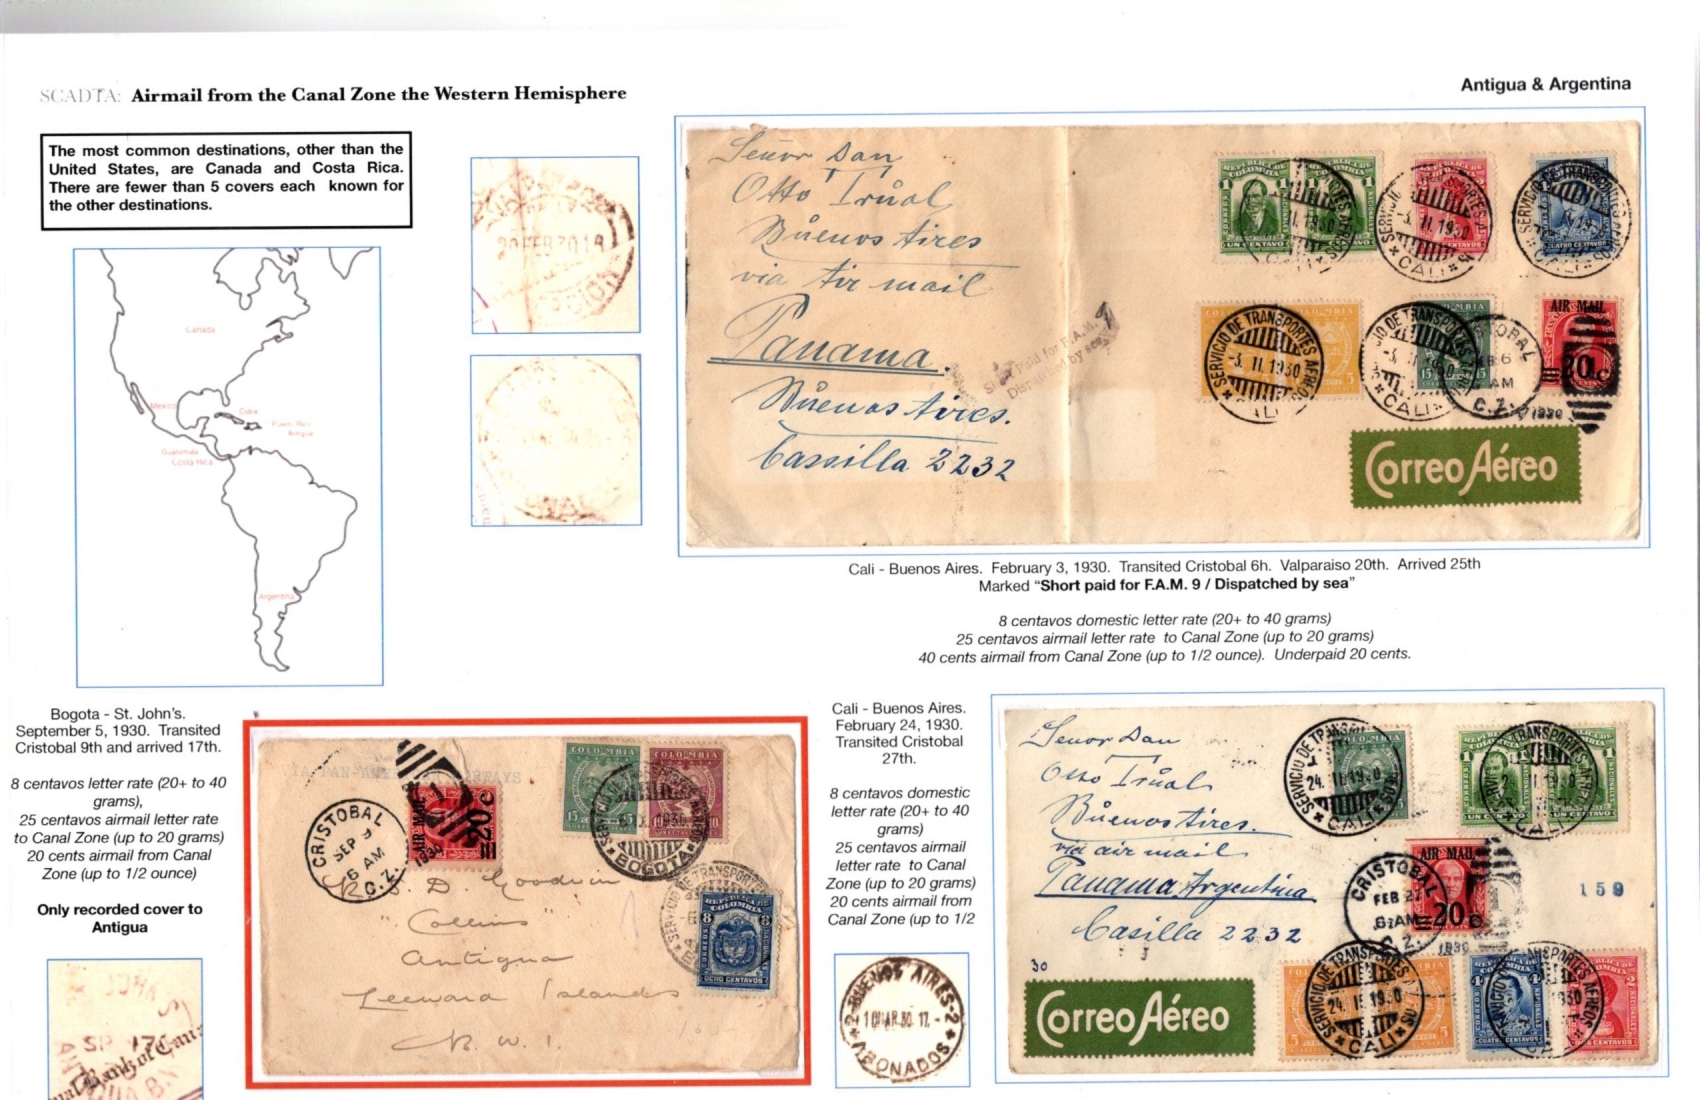 SCADTA: Airmail from the Canal Zone the Western Hemisphere
Antigua & Argentina
The most common destinations, other than the
United States, are Canada and Costa Rica.
There are fewer than 5 covers each known for
the other destinations.
Canada
Mexico
Cuba
Puerto Rico
Antigua
Guatemala
Costa Rica
Argentina
Señor Don
Otto Irúal
Búenos Aires
via Air mail
Panama.
Búenos Aires.
Cassilla 2232
Short Paid for F.A.M. 9
Dispatched by sea
REPUBLICA DE
COLOMBIA
1 1
UN CENTAVO
CUATRO CENTAVOS
SERVICIO DE TRANSPORTES AEREOS
-3. II. 1930
CALI
AIR MAIL
20c
FEB 6
AM
C.Z.
1930
Correo Aéreo
Cali - Buenos Aires. February 3, 1930. Transited Cristobal 6h. Valparaiso 20th. Arrived 25th
Marked "Short paid for F.A.M. 9 / Dispatched by sea"
8 centavos domestic letter rate (20+ to 40 grams)
25 centavos airmail letter rate to Canal Zone (up to 20 grams)
40 cents airmail from Canal Zone (up to 1/2 ounce). Underpaid 20 cents.
Bogota - St. John's.
September 5, 1930. Transited
Cristobal 9th and arrived 17th.
8 centavos letter rate (20+ to 40
grams),
25 centavos airmail letter rate
to Canal Zone (up to 20 grams)
20 cents airmail from Canal
Zone (up to 1/2 ounce)
Only recorded cover to
Antigua
SP 17
VIA PAN-AMERICAN AIRWAYS
CRISTOBAL
SEP 9
6 AM
C.Z.
1930
AIR MAIL
20c
COLOMBIA
15
COLOMBIA
10 10
BOGOTA
REPUBLICA DE
COLOMBIA
8 8
CORREOS
NACIONALES
OCHO CENTAVOS
D. Goodwin
"Collins"
Antigua
Leeward Islands
B. W. I.
Cali - Buenos Aires.
February 24, 1930.
Transited Cristobal
27th.
8 centavos domestic
letter rate (20+ to 40
grams)
25 centavos airmail
letter rate to Canal
Zone (up to 20 grams)
20 cents airmail from
Canal Zone (up to 1/2
2-BUENOS AIRES-2
MAR.30. 17.
ABONADOS
Señor Don
Otto Irúal
Búenos Aires.
via air mail
Panama Argentina
Casilla 2232
30
Correo Aéreo
SERVICIO DE TRANSPORTES AEREOS
24. II. 1930
CALI
1 1
UN CENTAVO
AIR MAIL
20c
CRISTOBAL
FEB 27
AM
C.Z.
1930
159
COLOMBIA
4
CUATRO CENTAVOS
2
DOS CENTAVOS